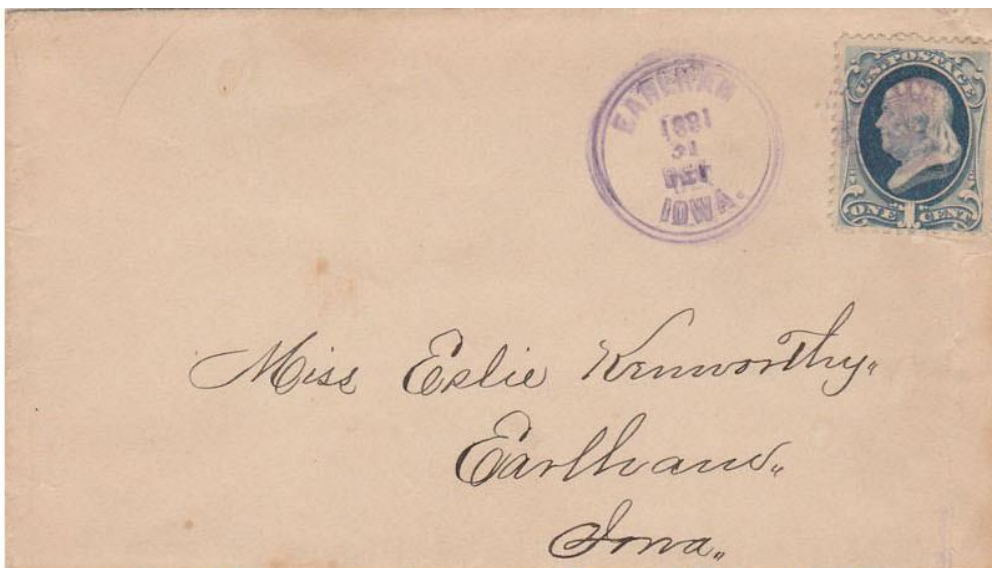 EARLHAM
1881
IOWA.
U.S. POSTAGE
ONE 1 CENT
Miss Eslie Kenworthy,,
Earlham,,
Iowa,,